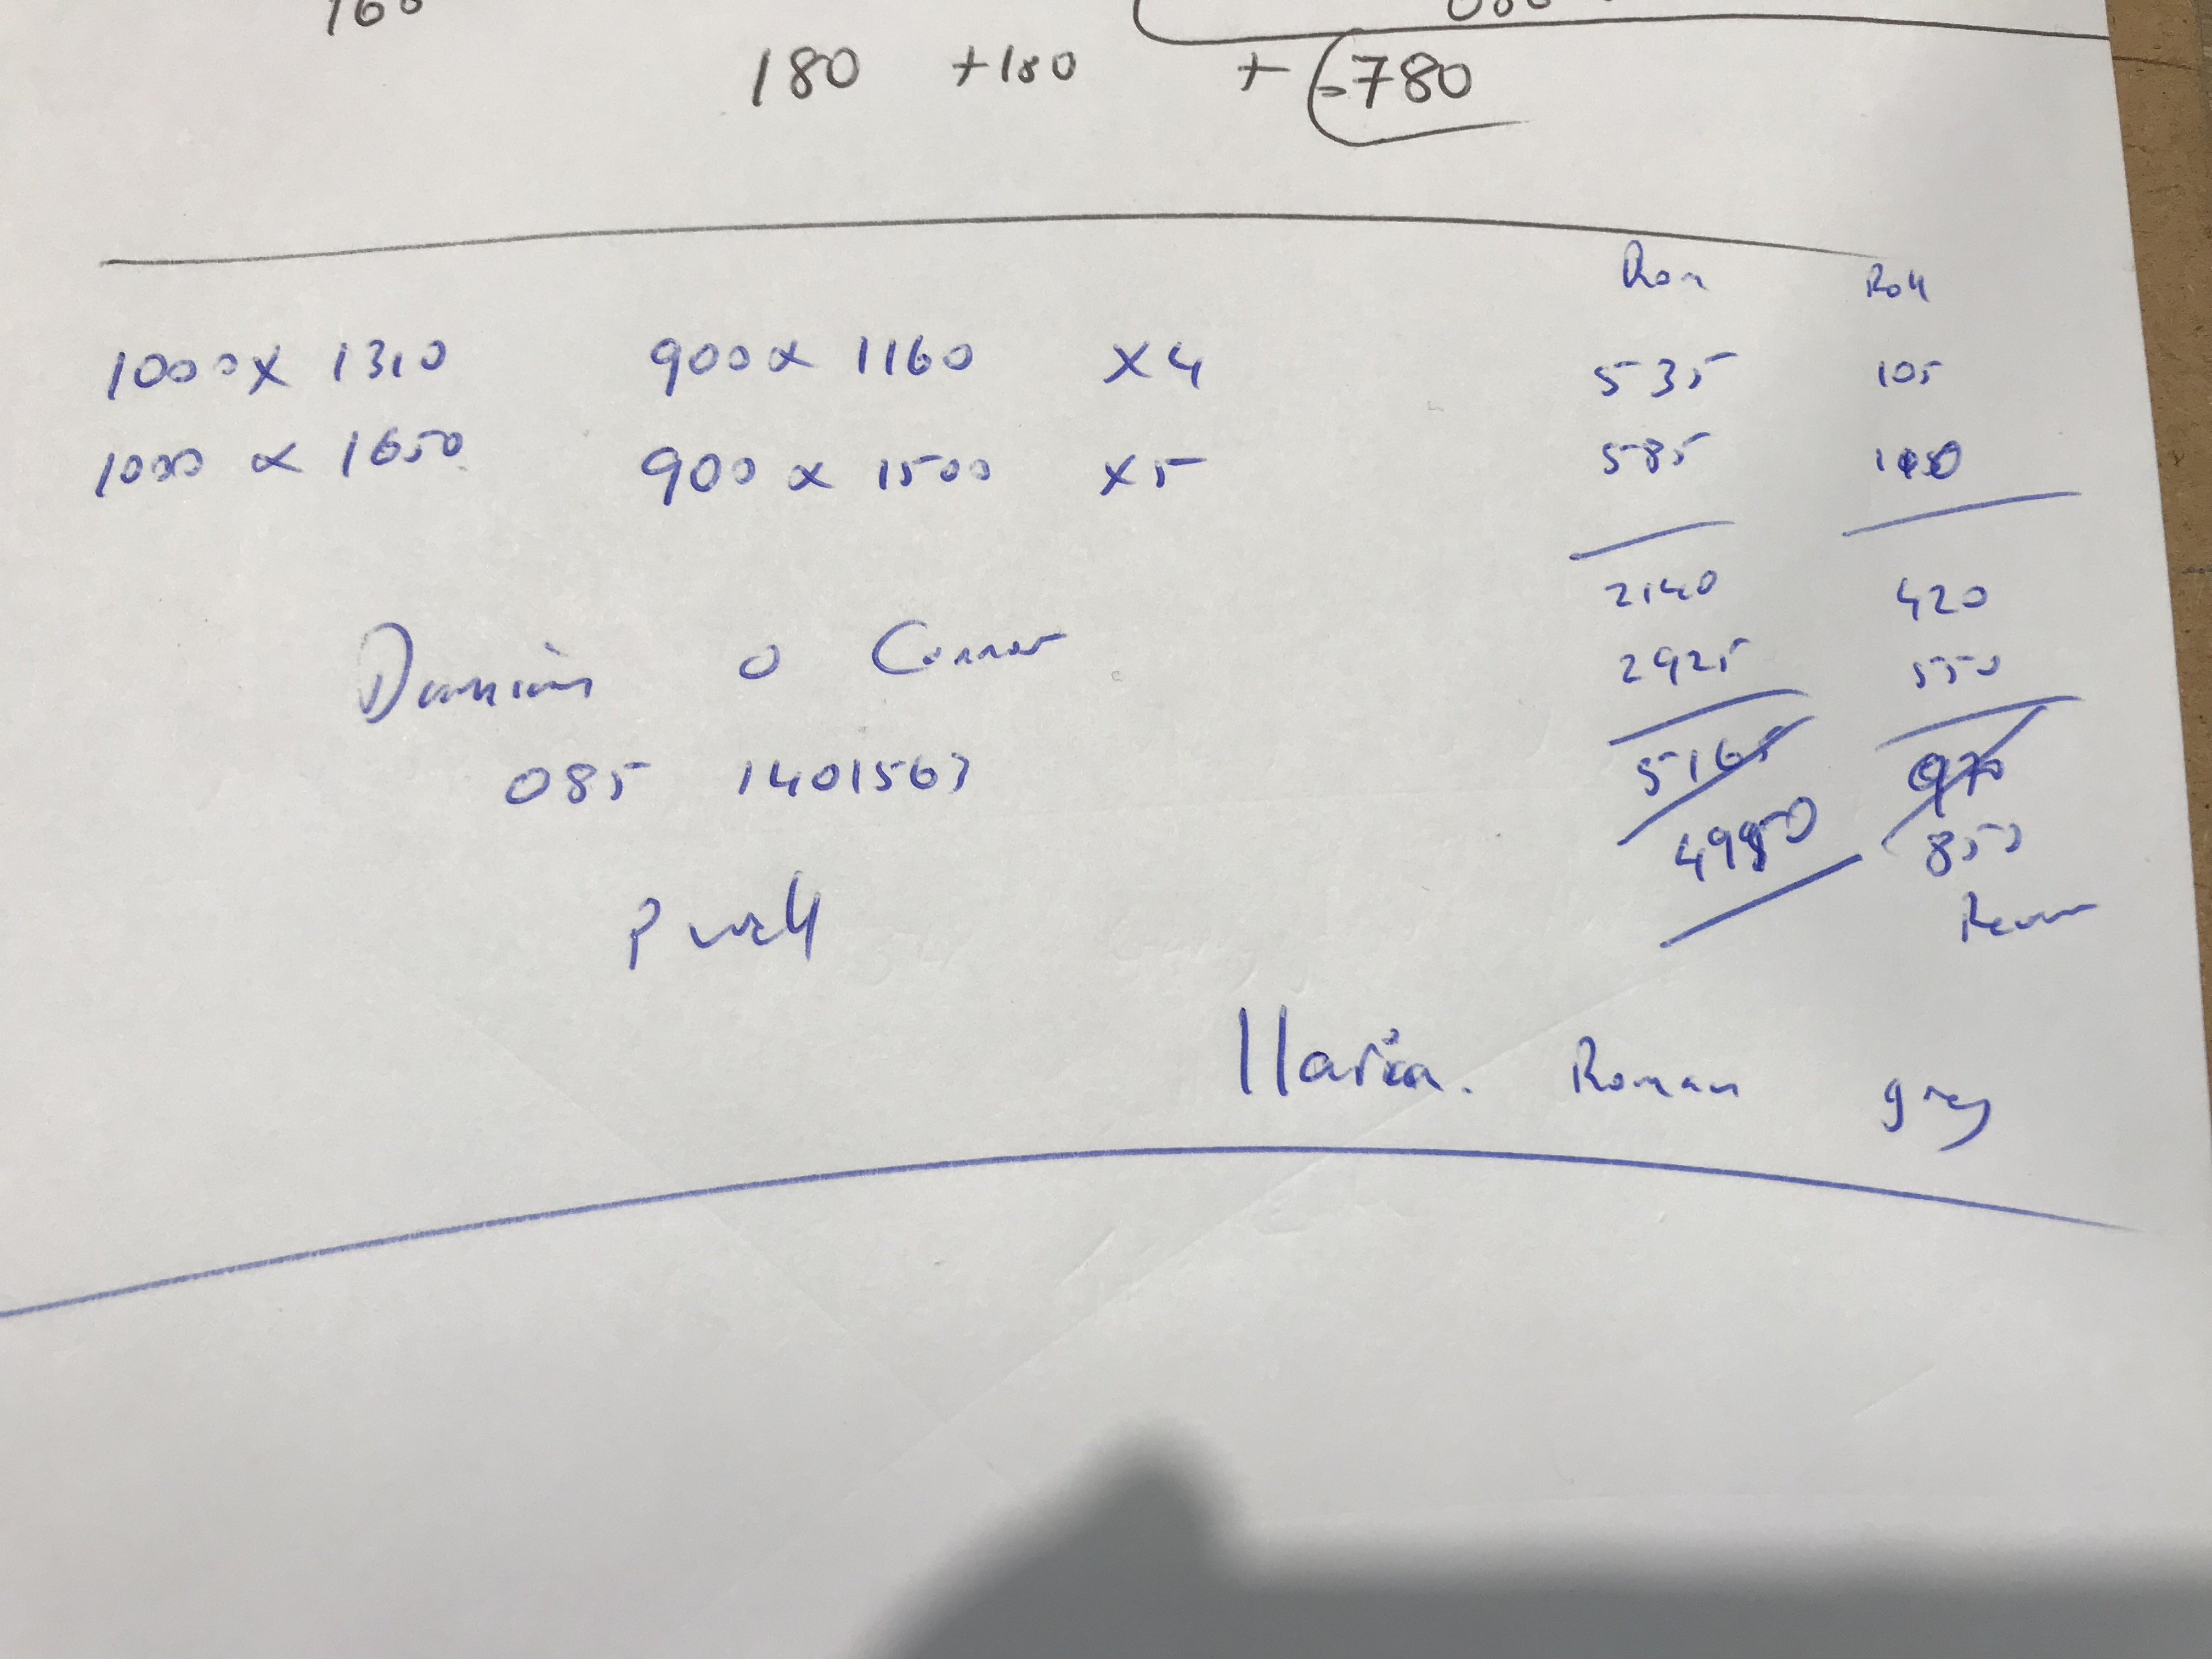 180 +180 + 780
Rom Roll
1000 x 1310 900 x 1160 x4 535 105
1000 x 1650 900 x 1500 x5 585 110
2140 420
Damian O Connor 2925 550
085 1401563 5165 970
4950 850
Ilaria. Roman grey